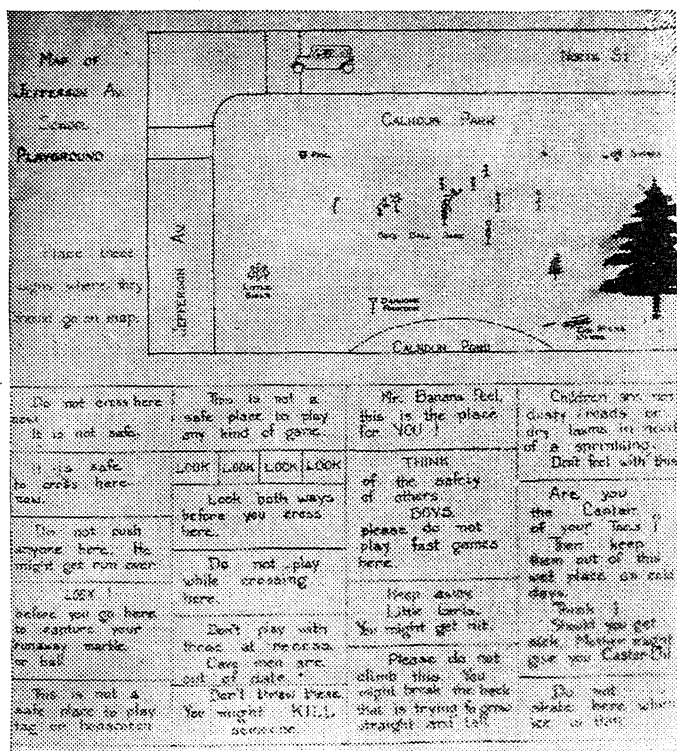 MAP OF
JEFFERSON AV.
SCHOOL
PLAYGROUND
Place these
signs where they
should go on map.
NORTH ST
CALHOUN PARK
PAIL
JEFFERSON AV.
BOYS BALL GAME
LITTLE
GIRLS
DRINKING
FOUNTAIN
CALHOUN POND
Do not cross here
now.
It is not safe.
It is safe
to cross here
now.
Do not push
anyone here. He
might get run over
LOOK !
before you go here
to capture your
runaway marble
or ball
This is not a
safe place to play
tag or
This is not a
safe place to play
any kind of game.
LOOK LOOK LOOK LOOK
Look both ways
before you cross
here.
Do not play
while crossing
here.
Don't play with
these at recess.
Cave men are
out of date.
Don't throw these.
You might KILL
someone.
Mr. Banana Peel,
this is the place
for YOU !
THINK
of the safety
of others
BOYS
please do not
play fast games
here.
Keep away
Little Girls.
You might get hit.
Please do not
climb this. You
might break the back
that is trying to grow
straight and tall
Children are not
dusty roads or
dry lawns in need
of a sprinkling.
Don't fool with this
Are you
the Captain
of your Toes ?
Then keep
them out of this
wet place on cold
days.
Think !
Should you get
sick, Mother might
give you Castor Oil
Do not
skate here when
ice is thin